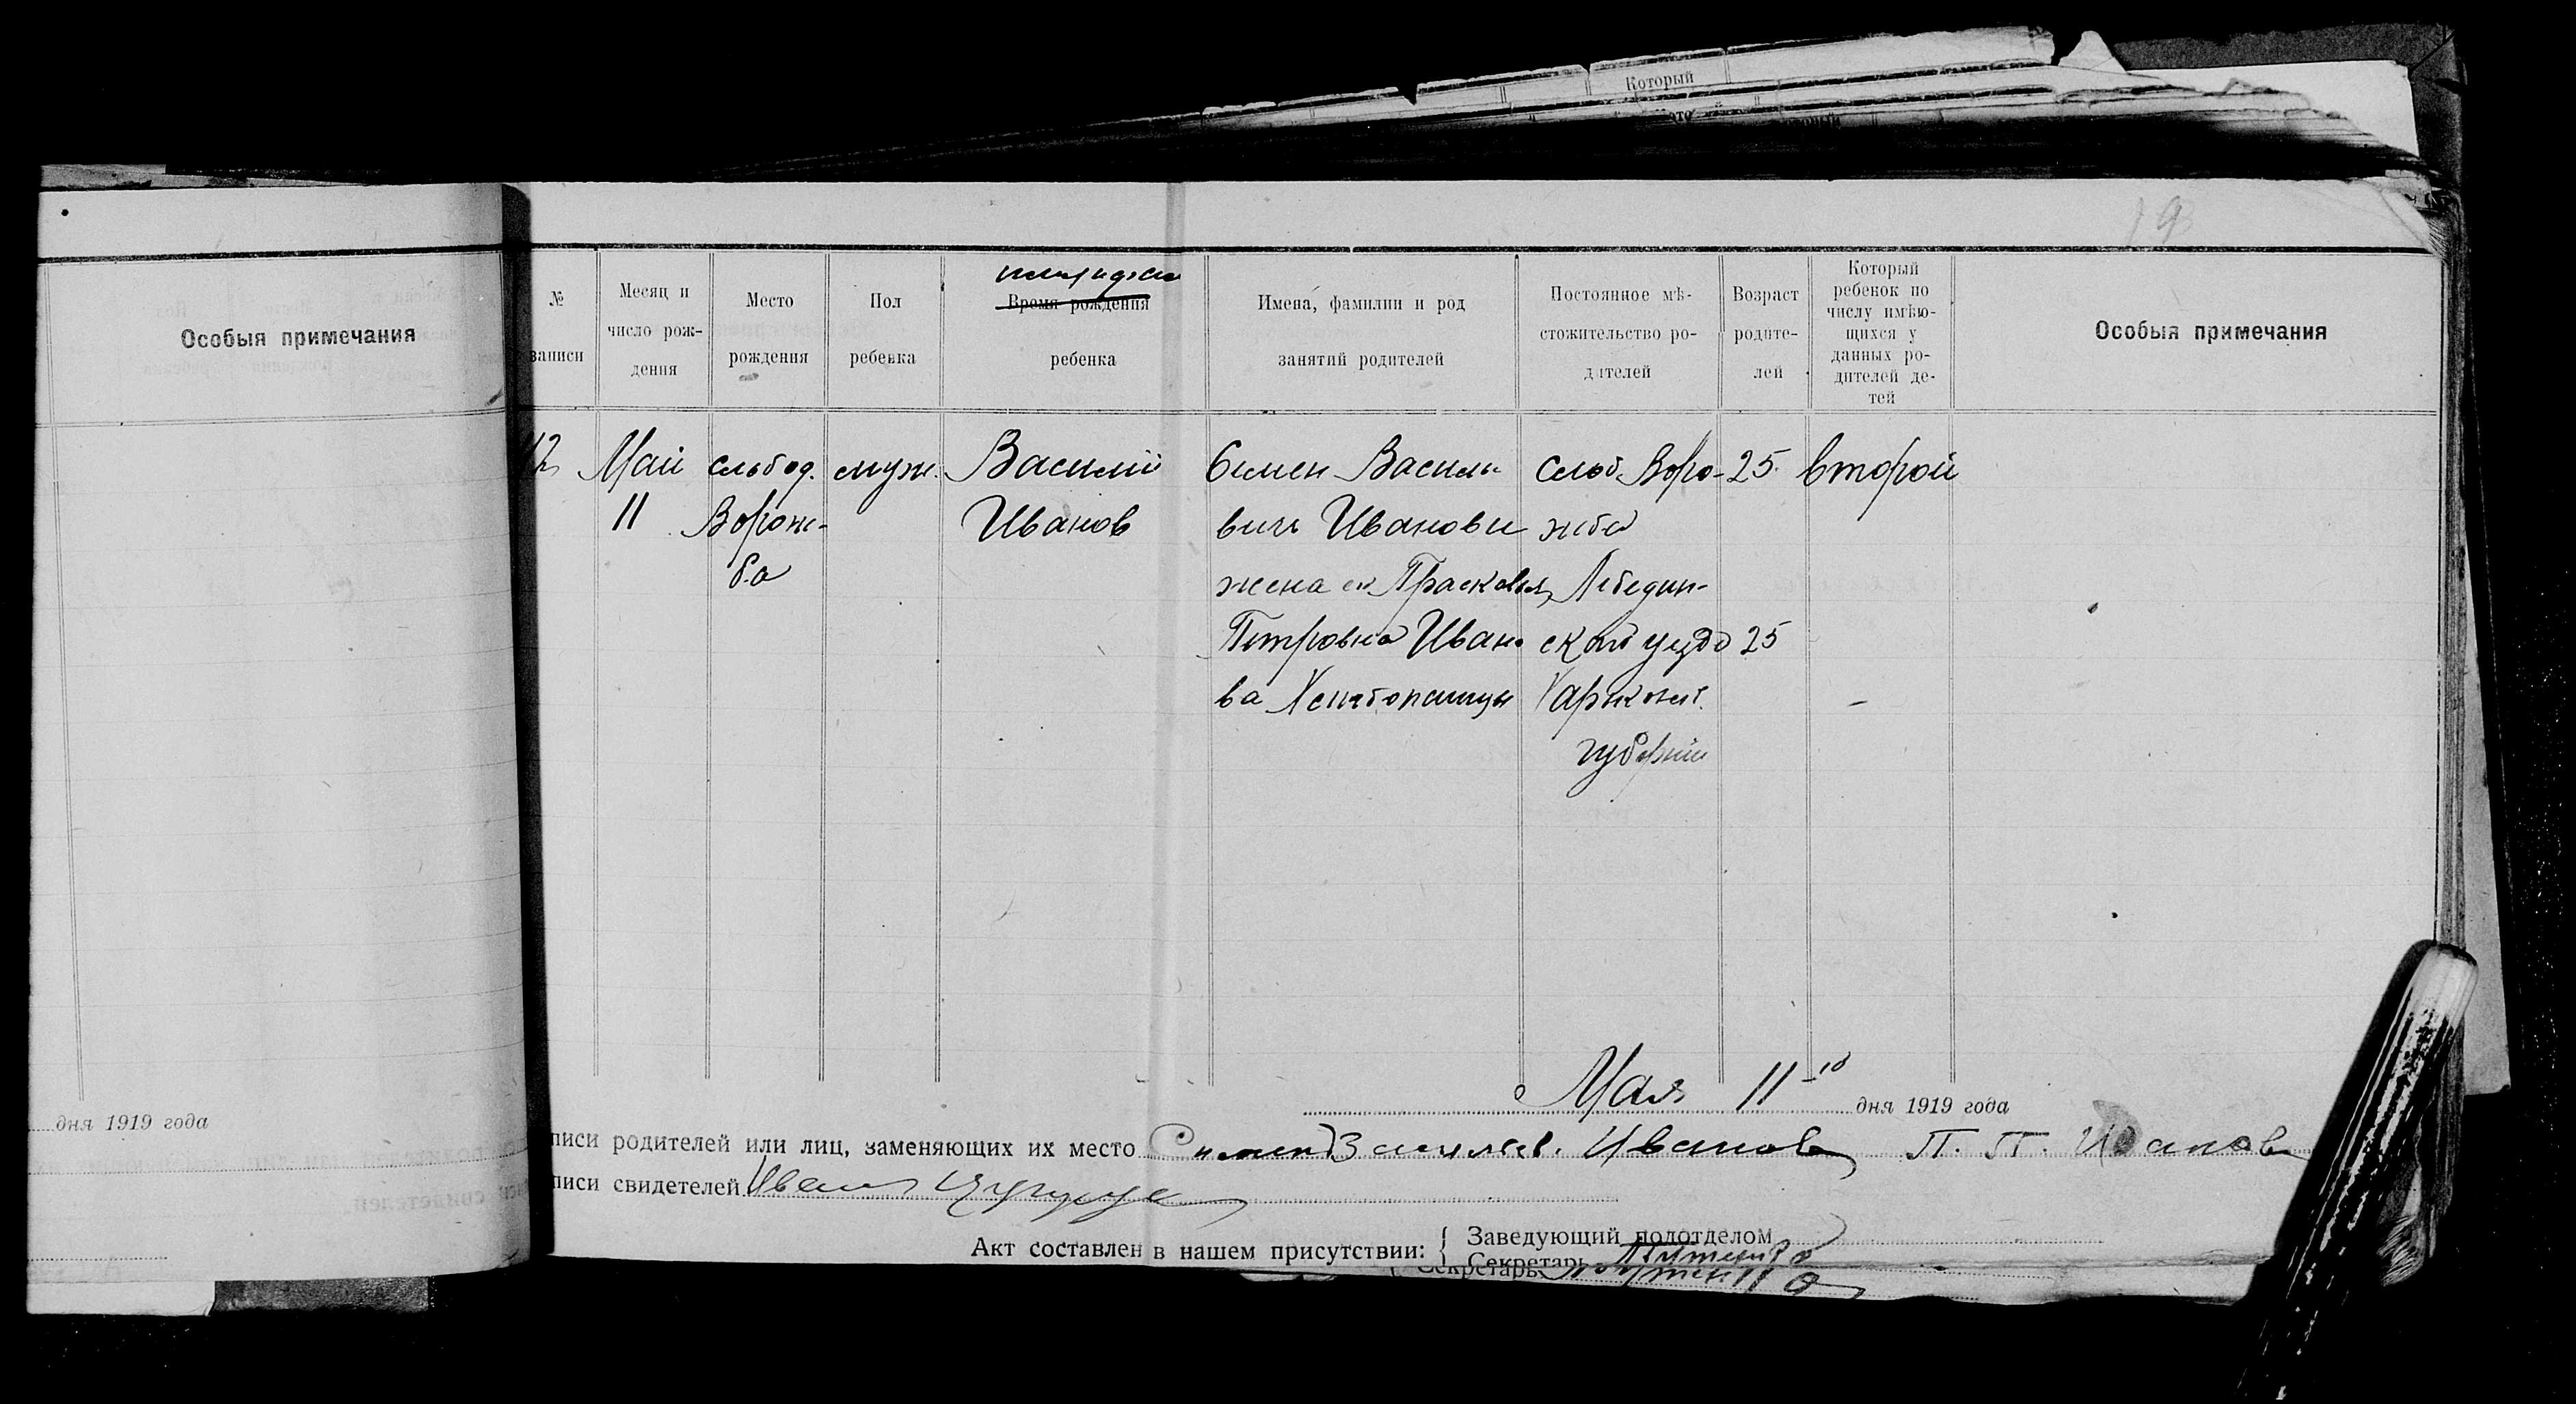 Который
19
Особыя примечания
№ записи
Месяц и число рож-дения
Место рождения
Пол ребенка
Время рождения ребенка
Имена, фамилии и род занятий родителей
Постоянное мѣ-стожительство ро-дителей
Возраст родите-лей
Который ребенок по числу имѣю-щихся у данных ро-дителей де-тей
Особыя примечания
12 Май слобод. муж. Василій Симен Василь- слоб. Воро- 25 второй
11 Ворож- Иванов вичъ Ивановы жба
ба жена ек Прасковья Лебедин-
Петровна Ивано ской уездо 25
ва Хлебопашцы Харьковс.
губернии
Мая 11-го дня 1919 года
дня 1919 года
писи родителей или лиц, заменяющих их место Симен Васильев. Иванов П. П. Иванов
писи свидетелей Иван
Акт составлен в нашем присутствии: Заведующий подотделом
Секретарь
Секретарь